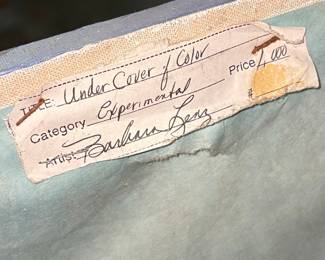 Title: Under Cover of Color
Category Experimental Price 4,000
Artist Barbara Lenz $